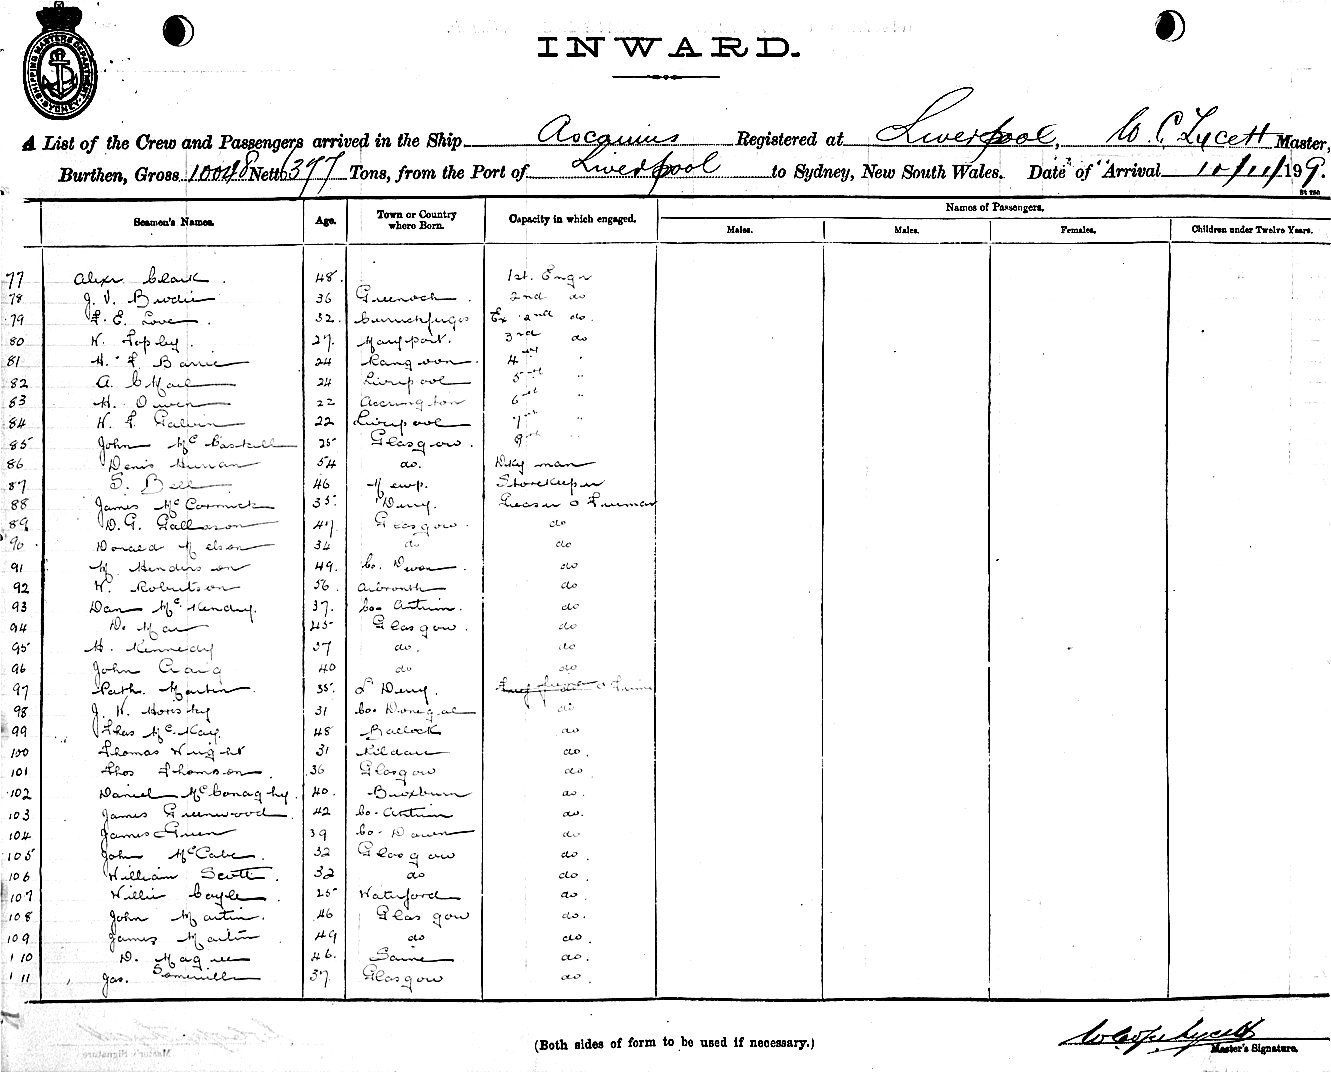 SHIPPING MASTERS DEPARTMENT SYDNEY
INWARD.
A List of the Crew and Passengers arrived in the Ship Ascanius Registered at Liverpool, W C Lycett Master,
Burthen, Gross 10048 Nett 6397 Tons, from the Port of Liverpool to Sydney, New South Wales. Date of Arrival 10/11/199.
Seamen's Names. Age. Town or Country where Born. Capacity in which engaged. Names of Passengers.
Males. Males. Females. Children under Twelve Years.
77 Alexr Clark. 48. 1st. Engr
78 J. V. Brodie 36 Greenock. 2nd do
79 F. E. Love. 32. Ex 2nd do.
80 W. Topley. 27. Maryport. 3rd do
81 H. F. Barrie 24 Rangoon. 4th "
82 A. 24 Liverpool 5th "
83 H. Owen 22 Accrington 6th "
84 W. F. Galvin 22 Liverpool 7th "
85 John McCaskill 25 Glasgow.
86 Denis 54 do. Dky man
87 S. Bell 46 Storekeeper
88 James McCormick 35. Derry. Greaser & Fireman
89 D. G. 47. Glasgow. do
90 Donald Nelson 34 do do
91 Henderson 49. Co. Down. do
92 W. Robertson 56. Arbroath do
93 Dan McKendry. 37. Co. Antrim. do
94 D. 45 Glasgow. do
95 H. Kennedy 37 do. do
96 John Craig 40 do do
97 Path. Martin. 35. Derry.
98 J. W. 31 Co. Donegal do
99 McKay. 48 Balloch do
100 Thomas Wright 31 Kildare do.
101 Thos Thomson. 36 Glasgow do.
102 Daniel McConaghy. 40. Broxburn do.
103 James Greenwood. 42 Co. Antrim do.
104 James Green 39 Co. Down do
105 John McCabe. 32 Glasgow do.
106 William Scott. 32 do do.
107 Willie Coyle. 25 Waterford do.
108 John Martin. 46 Glasgow do.
109 James Martin 49 do do.
110 D. Magee 46. do.
111 Jas. Somerville 37. Glasgow do.
(Both sides of form to be used if necessary.)
Master's Signature.